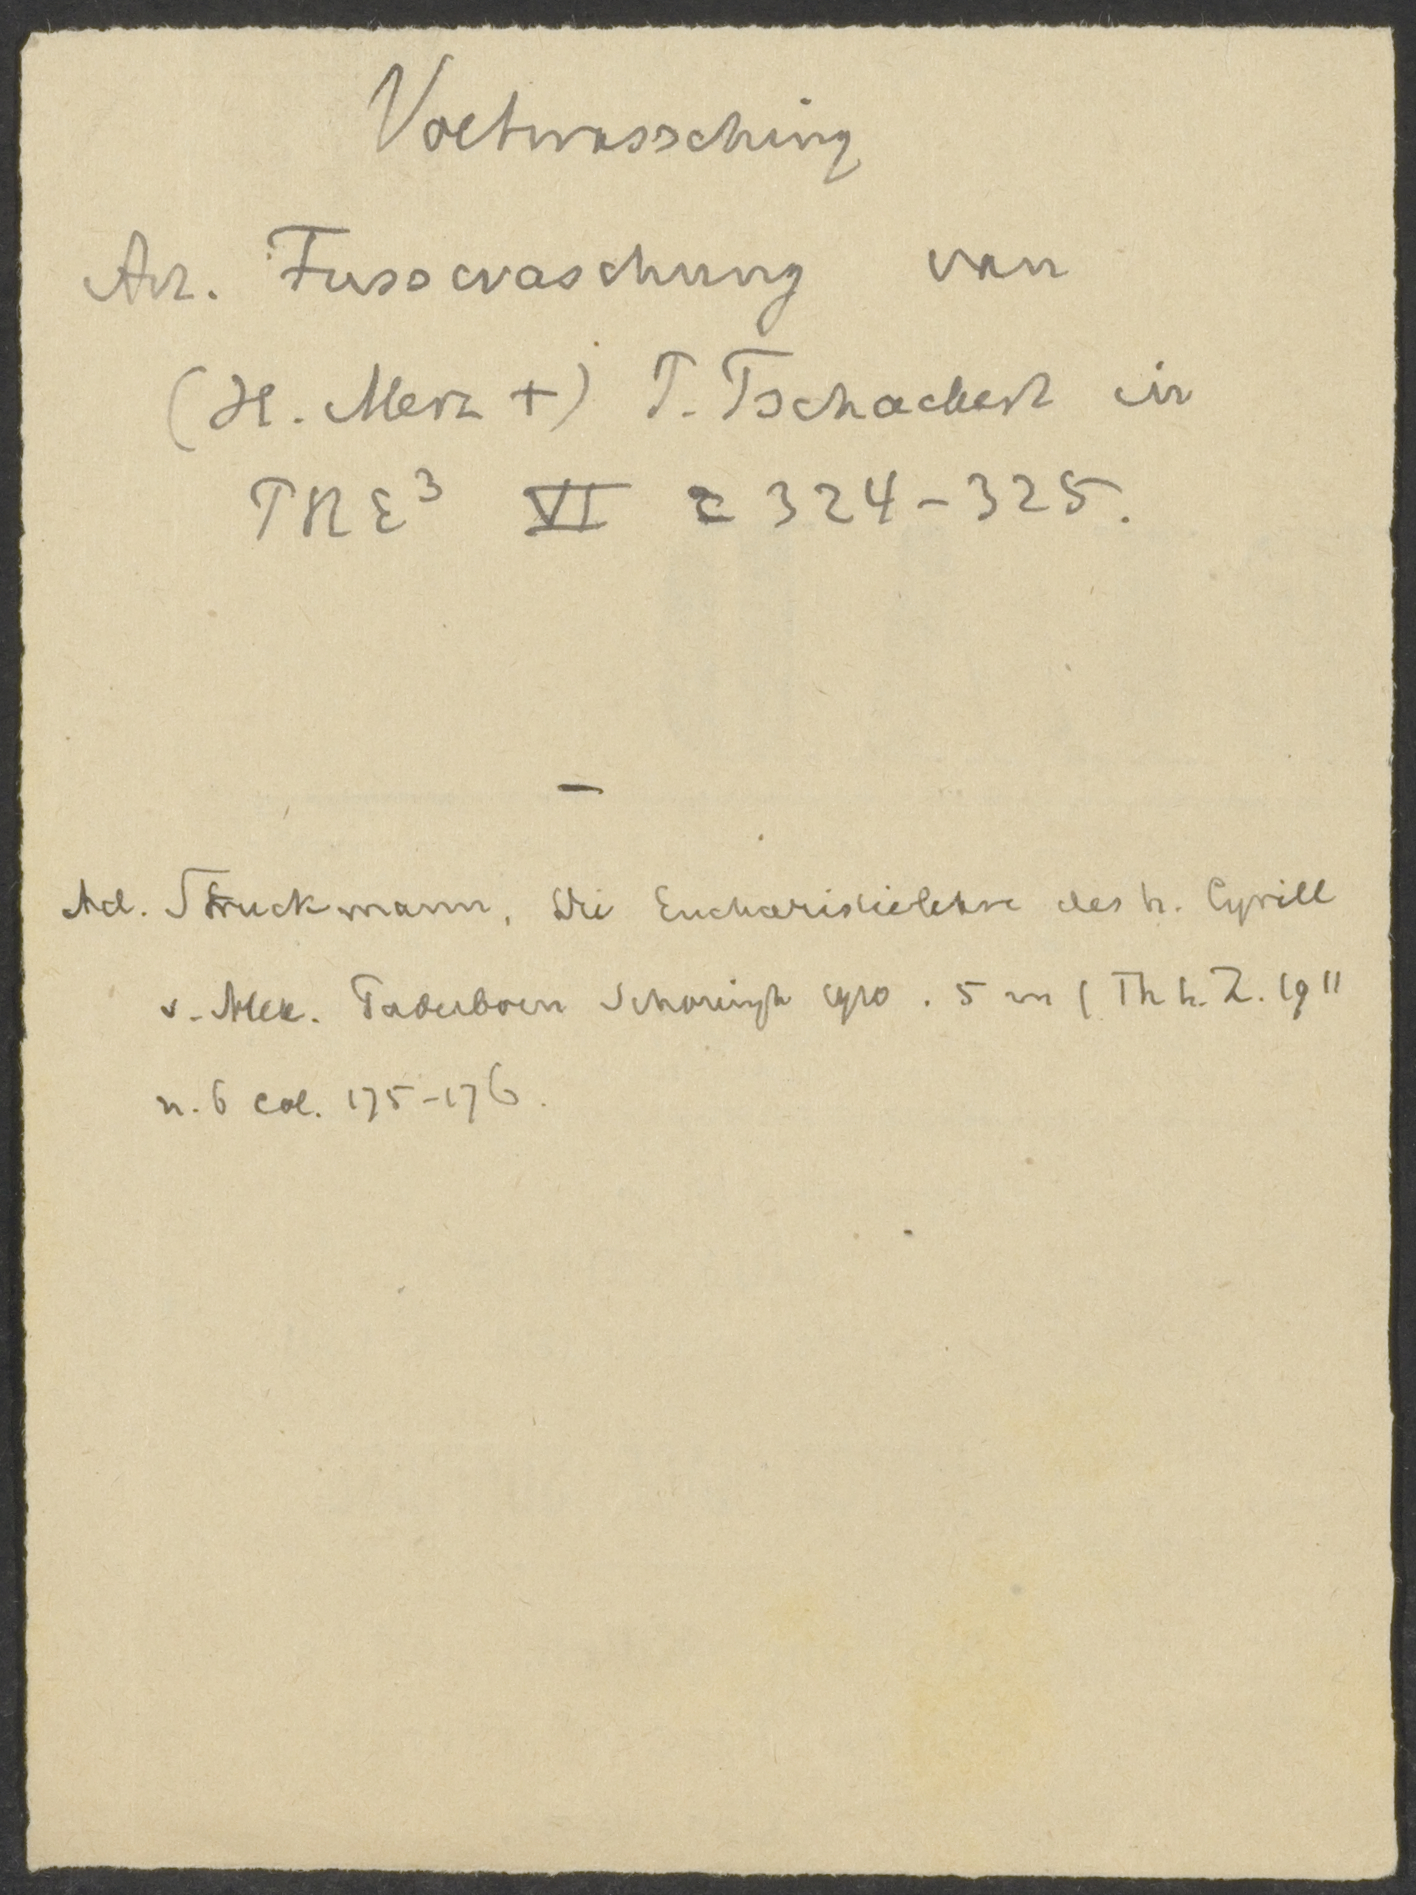 Voetwassching
Art. Fusswaschung van
(H. Merz †) P. Tschackert in
PRE³ VI 324-325.
—
Ad. Struckmann, Die Eucharistielehre des h. Cyrill
v. Alex. Paderborn Schöningh 1910. 5 m (Th L. Z. 1911
n. 6 col. 175-176.